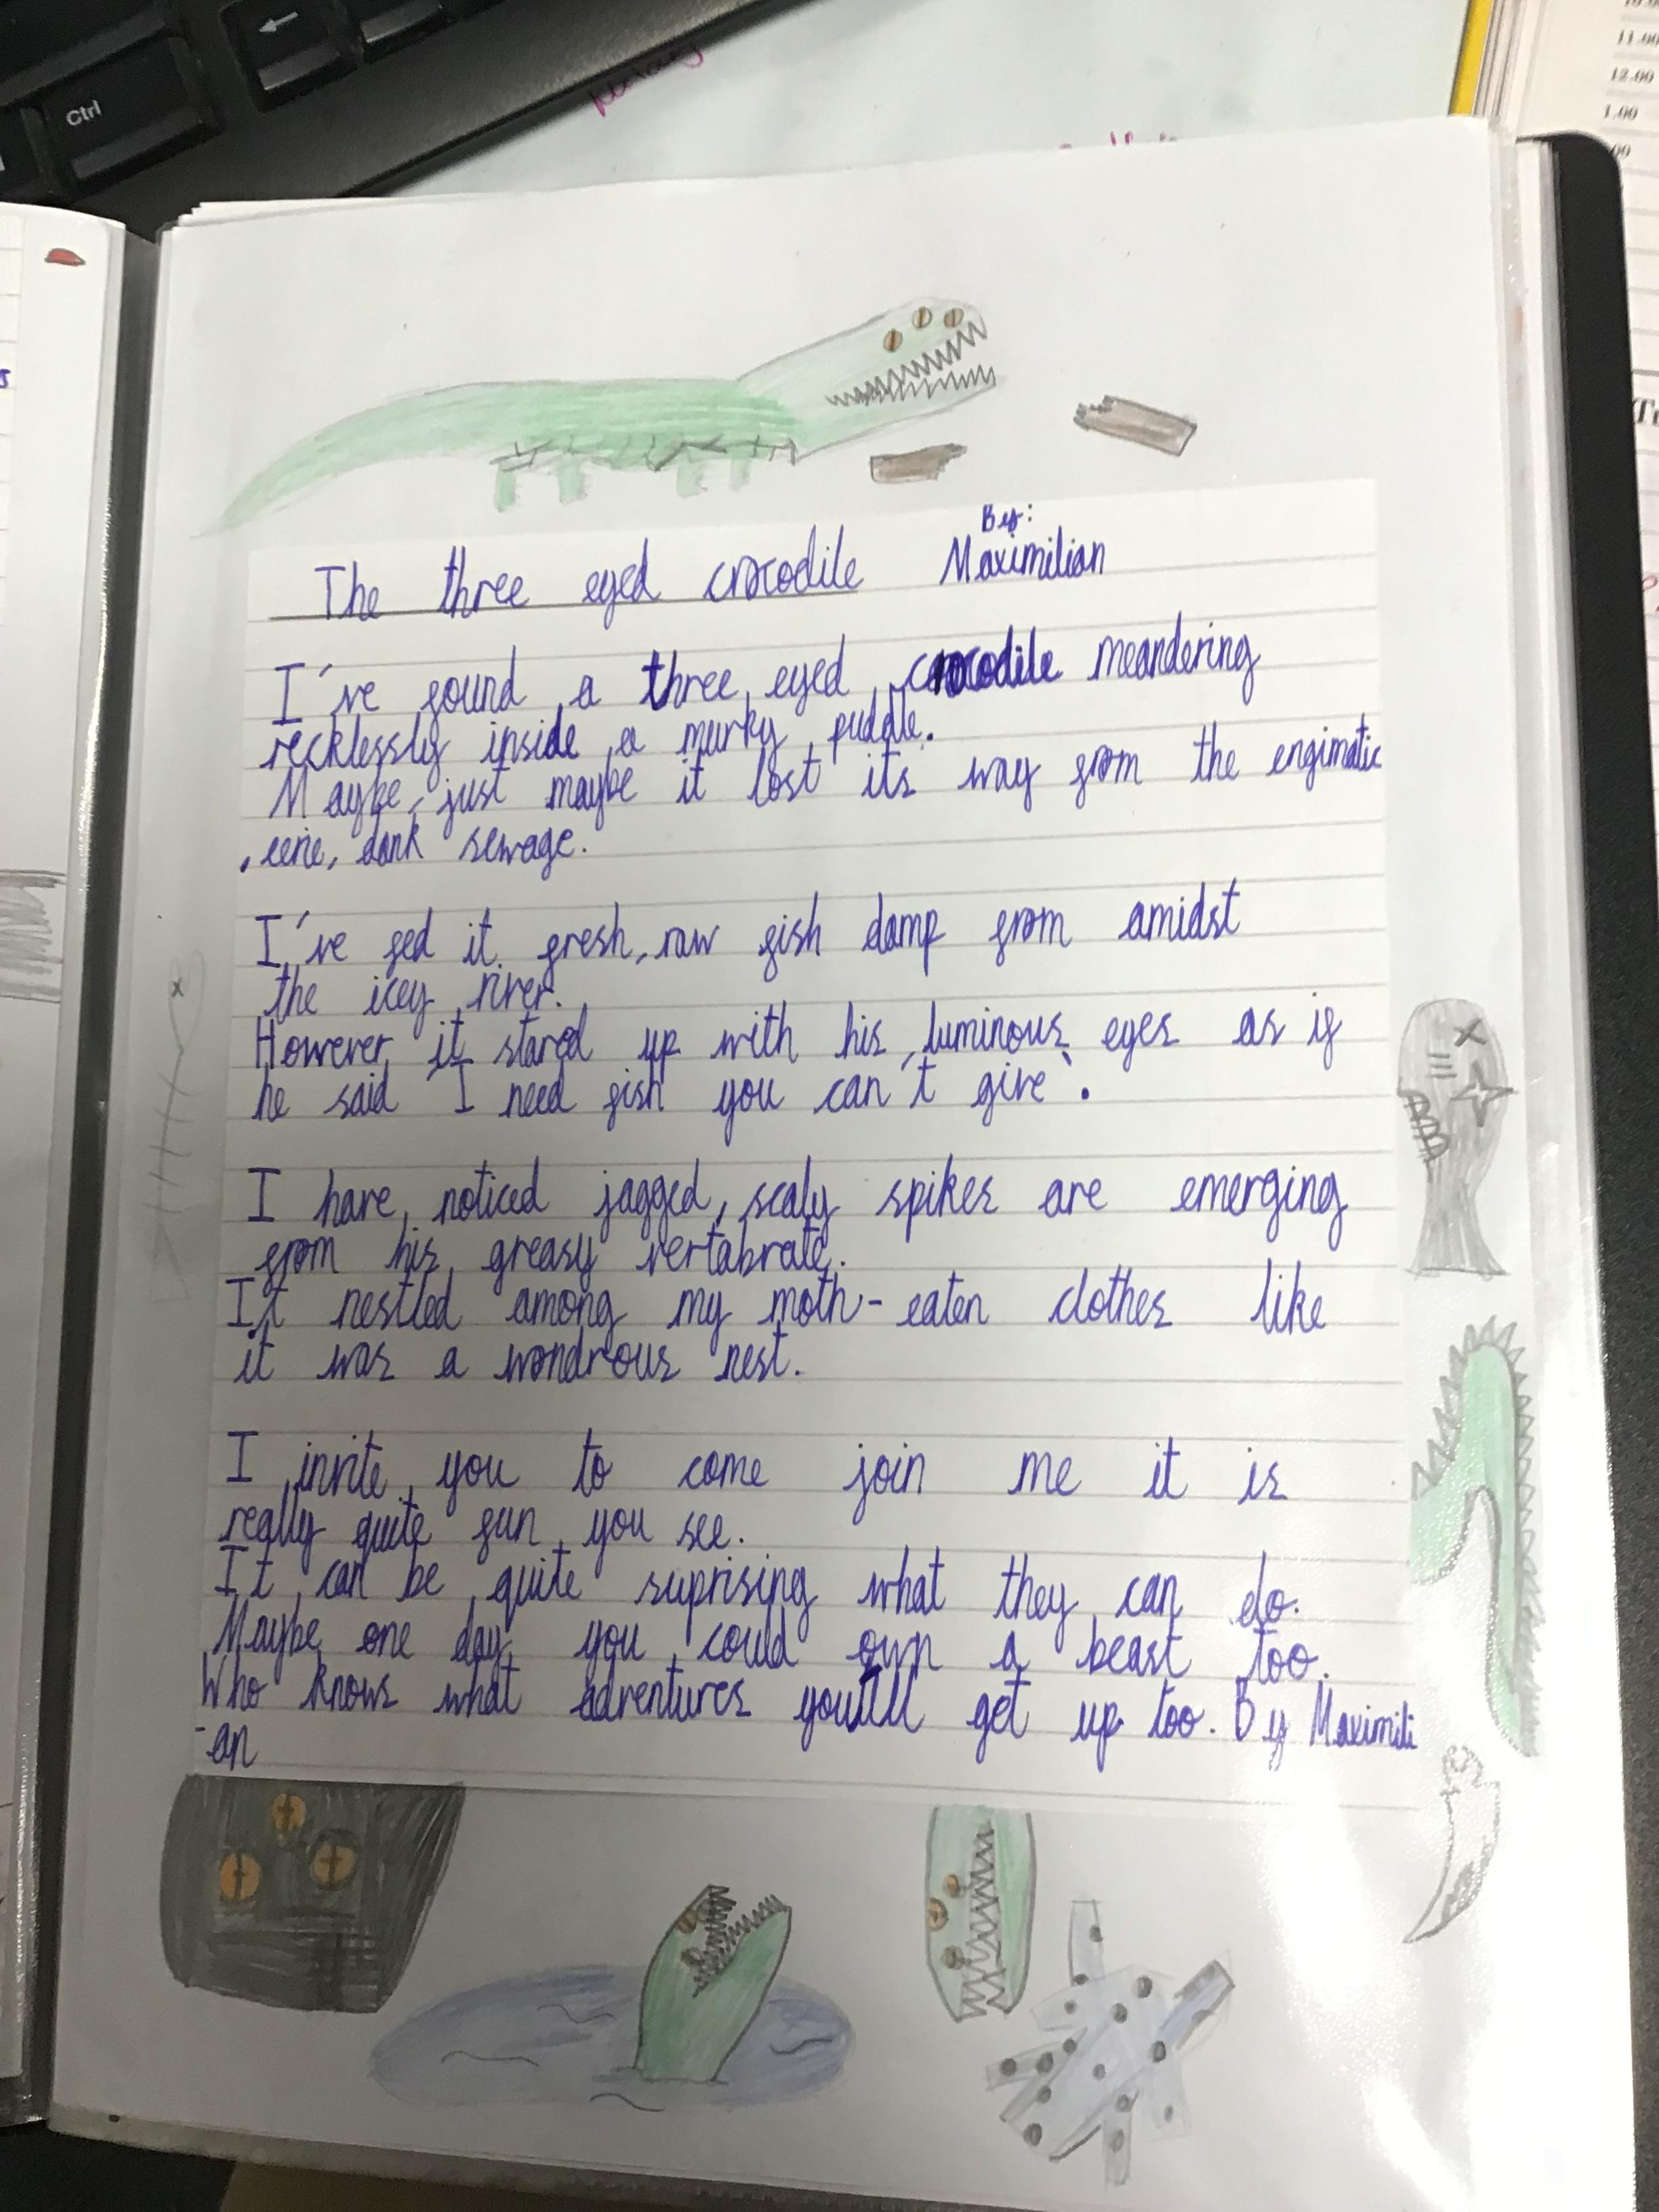 Ctrl
11.00
12.00
1.00
By:
The three eyed crocodile Maximilian
I've found a three eyed crocodile meandering
recklessly inside a murky puddle.
Maybe, just maybe it lost its way from the engimatic
, eerie, dank sewage.
I've fed it fresh, raw fish damp from amidst
the icey river.
However it stared up with his luminous eyes as if
he said 'I need fish you can't give'.
I have noticed jagged, scaly spikes are emerging
from his greasy vertabrate.
It nestled among my moth-eaten clothes like
it was a wondrous nest.
I invite you to come join me it is
really quite fun you see.
It can be quite suprising what they can do.
Maybe one day you could own a beast too.
Who knows what adventures you'll get up too. By Maximili
-an